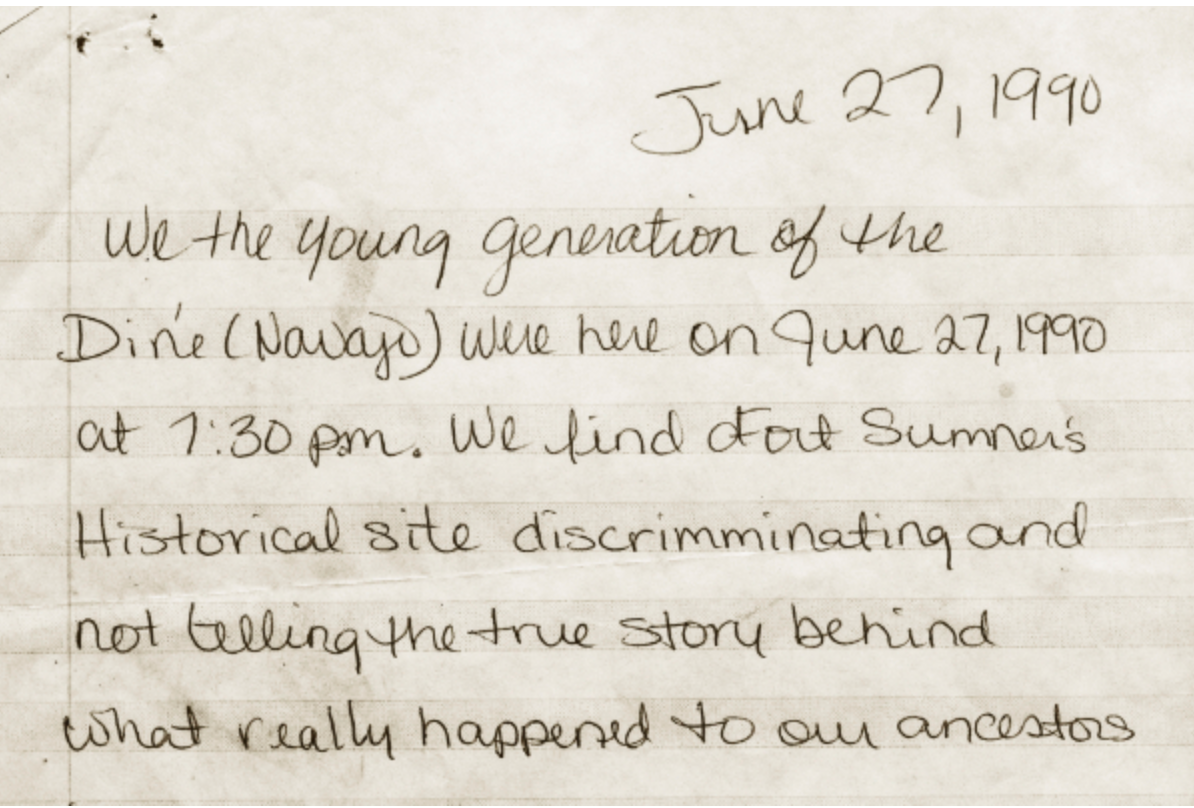 June 27, 1990
We the young generation of the
Diné (Navajo) were here on June 27, 1990
at 1:30 pm. We find Fort Sumner's
Historical site discrimminating and
not telling the true story behind
what really happened to our ancestors